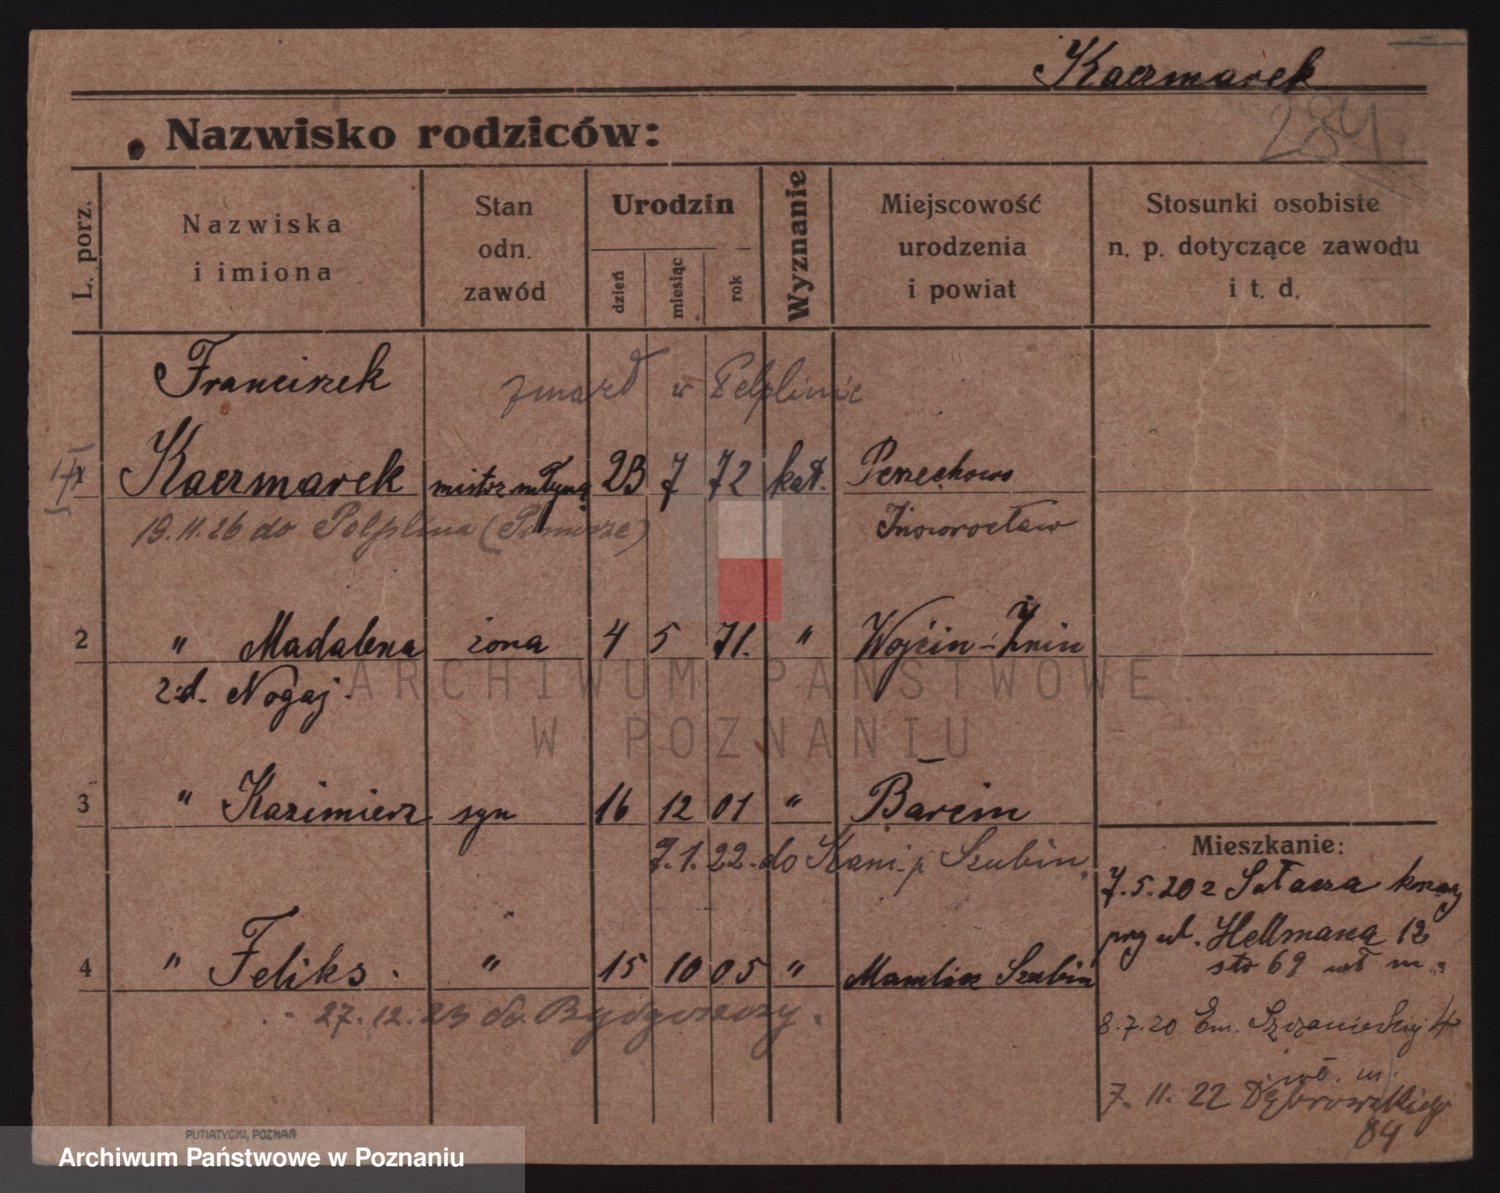 Kaczmarek
284
Nazwisko rodziców:
L. porz.
Nazwiska
i imiona
Stan
odn.
zawód
Urodzin
dzień
miesiąc
rok
Wyznanie
Miejscowość
urodzenia
i powiat
Stosunki osobiste
n. p. dotyczące zawodu
i t. d.
Franciszek
zmarł w Pelplinie
Kaczmarek mistrz młyna 23 7 72 kat. Perzechowo
19.11.26 do Pelplina (Pomorze) Inowrocław
2 " Madalena żona 4 5 71. " Wojcin - Żnin
z d. Nogaj.
3 " Kazimierz syn 16 12 01 " Barcin
7.1.22. do Kani p Szubin.
Mieszkanie:
7.5.20 z Sołacza
ul. Hellmana 12
4 " Feliks. " 15 10 05 " Szubin
69 m.
27.12.23 do Bydgoszczy.
8.7.20 Em. Szczanieckiej 4
wł. m.
7.11.22 Dąbrowskiego
84
PUTIATYCKI, POZNAŃ
ARCHIWUM PAŃSTWOWE
W POZNANIU
Archiwum Państwowe w Poznaniu